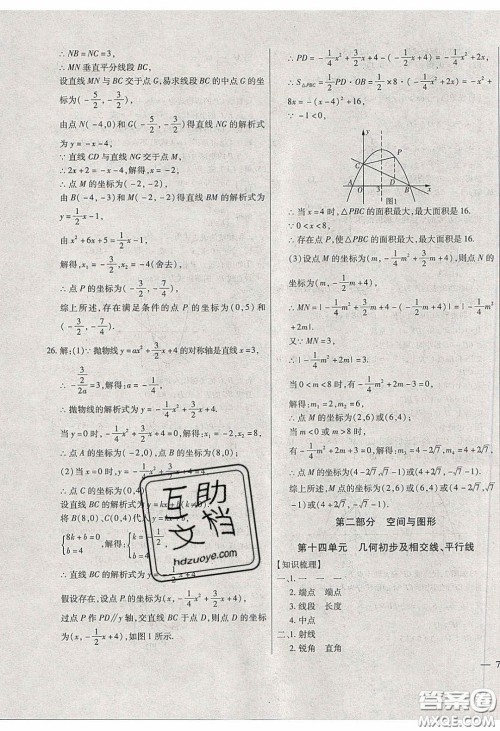 ∴NB=NC=3,
∴MN垂直平分线段BC,
设直线MN与BC交于点G,易求线段BC的中点G的坐
标为(-5/2,-3/2),
由点N(-4,0)和点G(-5/2,-3/2)得直线NG的解析式
为y=-x-4;
∵直线CD与直线MN交于点M,
∴2x+2=-x-4,解得:x=-2,
∴点M的坐标为(-2,-2),
由B(-4,-3)和M(-2,-2)得直线BM的解析式为
y=1/2x-1,
由x²+6x+5=1/2x-1,
解得:x₁=-3/2,x₂=-4(舍去),
∴点P的坐标为(-3/2,-7/4),
综上所述,存在满足条件的点P的坐标为(0,5)和
(-3/2,-7/4).
26.解:(1)∵抛物线y=ax²+3/2x+4的对称轴是直线x=3,
∴-(3/2)/2a=3,解得:a=-1/4,
∴抛物线的解析式为y=-1/4x²+3/2x+4.
当y=0时,-1/4x²+3/2x+4=0,解得:x₁=-2,x₂=8,
∴点A的坐标为(-2,0),点B的坐标为(8,0);
(2)当x=0时,y=-1/4x²+3/2x+4=4,
∴点C的坐标为(0,4).
设直线BC的解析式为y=kx+b(k≠0),
将B(8,0),C(0,4)代入y=kx+b,
{8k+b=0, b=4,解得:{k=-1/2, b=4,
∴直线BC的解析式为y=-1/2x+4.
假设存在,设点P的坐标为(x,-1/4x²+3/2x+4),
过点P作PD∥y轴,交直线BC于点D,则点D的坐标
为(x,-1/2x+4),如图1所示.
∴PD=-1/4x²+3/2x+4-(-1/2x+4)=-1/4x²+2x,
∴S△PBC=1/2PD·OB=1/2×8·(-1/4x²+2x)=-x²+
8x=-(x-4)²+16,
∵-1<0,
y
C
P
D
A
O
3
B
x
图1
∴当x=4时,△PBC的面积最大,最大面积是16.
∵0<x<8,
∴存在点P,使△PBC的面积最大,最大面积是16.
(3)设点M的坐标为(m,-1/4m²+3/2m+4),则点N的
坐标为(m,-1/2m+4),
∴MN=|-1/4m²+3/2m+4-(-1/2m+4)|=|-1/4m²+2m|.
又∵MN=3,
∴|-1/4m²+2m|=3.
当0<m<8时,有-1/4m²+2m-3=0,
解得:m₁=2,m₂=6,
∴点M的坐标为(2,6)或(6,4);
当m<0或m>8时,
有-1/4m²+2m+3=0,解得:m₃=4-2√7,m₄=4+2√7,
∴点M的坐标为(4-2√7,√7-1)或(4+2√7,-√7-1).
综上所述:点M的坐标为(2,6)或(6,4)或(4-2√7,
√7-1)或(4+2√7,-√7-1).
第二部分 空间与图形
第十四单元 几何初步及相交线、平行线
【知识梳理】
一、1.一 一
2.端点 端点
3.线段 长度
4.中点
二、1.射线
2.锐角 直角
7
互助文档
hdzuoye.com
答案圈
MXQE.COM